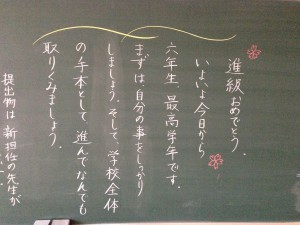 進級おめでとう．
いよいよ今日から
六年生、最高学年です．
まずは自分の事をしっかり
しましょう．そして、学校全体
の手本として、進んでなんでも
取りくみましょう．
提出物は新担任の先生が